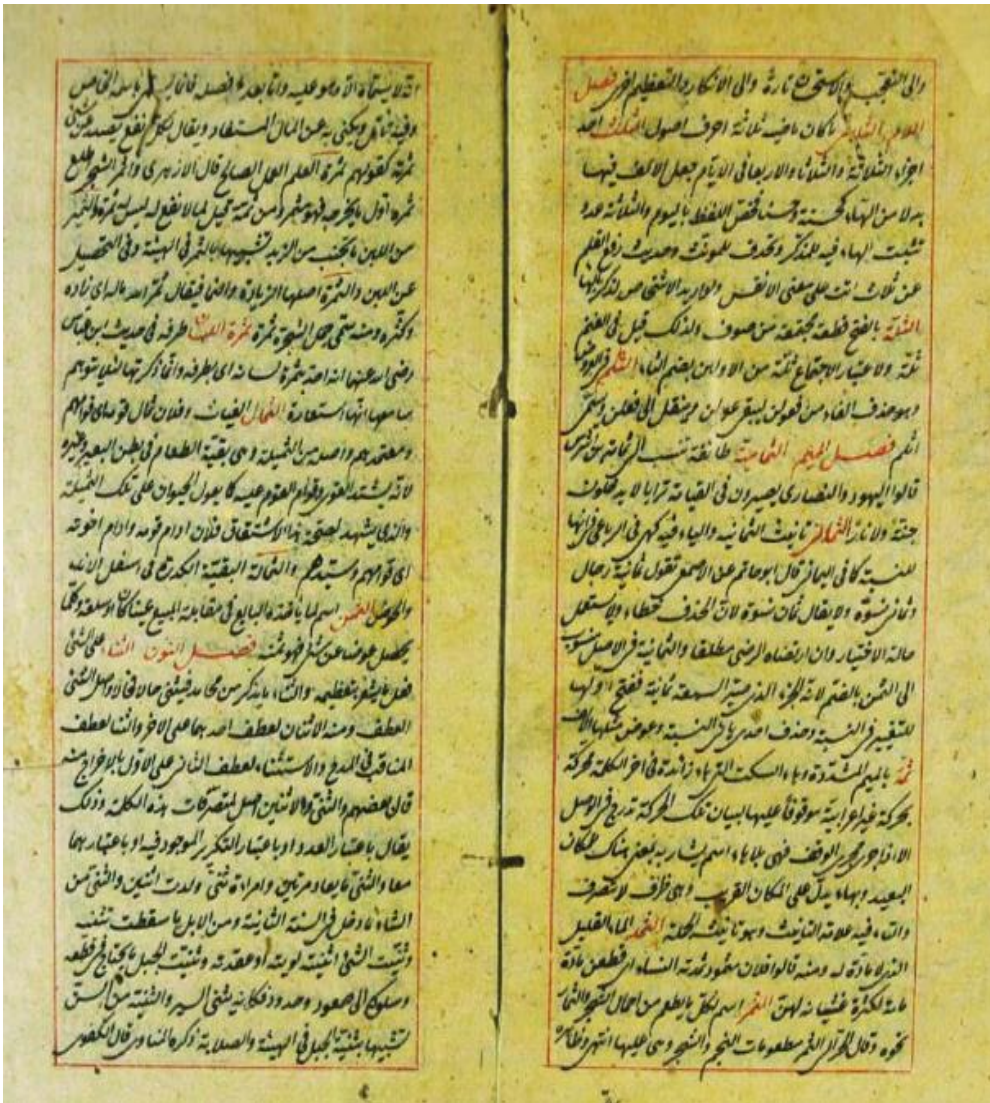 والى التعجب والاستحيا تارة والى الانكار والتعظيم اخرى فصل
اللام الثلاثى ما كان ماضيه ثلاثة احرف اصول الثلث احد
اجزاء الثلاثة والثلاثاء والاربعا فى الايام جعل الالف فيها
بدلا من الهاء كحسنة وحسنا فخص اللفظ باليوم والثلاثة عدد
تثبت الهاء فيه للمذكر وتحذف للمؤنث وحديث رفع القلم
عن ثلاث انث على معنى الانفس ولو اريد الاشخاص لذكر بالهاء
الثلة بالفتح قطعة مجتمعة من صوف ولذلك قيل فى الغنم
ثلة ولاعتبار الاجتماع ثلة من الاولين بضم الثاء الثلم فى العروض
وهو حذف الفاء من فعولن يبقى عولن وينقل الى فعلن ويسمى
اثلم فصل الميم الثمامية طائفة تنسب الى ثمامة بن اشرس
قالوا اليهود والنصارى يصيرون فى القيامة ترابا لا يدخلون
جنة ولا نارا الثمانى تانيث الثمانية والياء فيه كهى فى الرباعى فى انها
للنسبة كما فى اليمانى قال ابو حاتم عن الاصمعى تقول ثمانية رجال
وثمانى نسوة ولا يقال ثمان نسوة لان الحذف خطاء ولا يستعمل
حالة الاختيار وان ارتضاه الرضى مطلقا والثمانية فى الاصل منسوب
الى الثمن بالضم لانه الجزء الذى صير السبعة ثمانية ففتح اولها
للتغيير فى النسبة وحذف احدى يائى النسبة وعوض منها الالف
ثمة بالميم المشددة وهاء السكت التى هاء زائدة فى اخر الكلمة محركة
بحركة غير اعرابية موقوفا عليها لبيان تلك الحركة تدرج فى الوصل
الا اذا جرى مجرى الوقف فهى بلا هاء اسم يشار به بمعنى هناك للمكان
البعيد وبهاء يدل على المكان القريب وهى ظرف لا يتصرف
والتاء فيه علامة التانيث وهو تانيث الكلمة الثمد الماء القليل
الذى لا مادة له ومنه قالوا فلان مثمود ثمدته النساء اى قطعن مادة
مائه لكثرة غشيانه لهن الثمر اسم لكل ما يطعم من احمال الشجر والثمار
نحوه وقال الحرالى الثمر مطعومات النجم والشجر وهى عليها انتهى وظاهره
انه لا يسماه الا وهو عليه واما بعد فصله فانما يسمى باسمه الخاص
وفيه تامل ويكنى به عن المال المستفاد ويقال لكل نفع يصدر عن شئ
ثمرة كقولهم ثمرة العلم العمل الصالح قال الازهرى واثمر الشجر طلع
ثمره اول ما يخرجه فهو مثمر ومن ثمه قيل لما لا نفع له ليس له ثمرة والثمير
من اللبن ما يجتنب من الزبد تشبيها بالثمر فى الهيئة وفى التحصيل
عن اللبن والثمرة اصلها الزيادة والنما فيقال ثمر الله ماله اى زاده
وكثره ومنه سمى حمل الشجرة ثمرة ثمرة اللسان طرفه فى حديث ابن عباس
رضى الله عنهما انه اخذ بثمرة لسانه اى بطرفه وانما ذكرتها لئلا يتوهم
سامعها انها استعارة الثمال الغياث وفلان ثمال قومه اى قوامهم
ومعتمدهم واصله من الثميلة وهى بقية الطعام فى بطن البعير وغيره
لانه يشتد القوى وقوام القوم عليه كما يعول الحيوان على تلك الثميلة
والذى يشهد لصحة هذا الاشتقاق فلان ادام قومه وادام اخوته
اى قوامهم وسيدهم والثمالة البقية الكدرة فى اسفل الاناء
والحوض الثمن اسم لما ياخذه البايع فى مقابلة المبيع عينا كان او سلعة وكلما
يحصل عوضا عن شئ فهو ثمنه فصل النون الثناء على الشئ
فعل ما يشعر بتعظيمه والثناء ما يذكر من محامد فيثنى حالا فحالا واصل الثنى
العطف ومنه الاثنان لعطف احدهما على الاخر والثنا لعطف
المناقب فى المدح والاستثناء لعطف الثانى على الاول بالاخراج منه
قال بعضهم والثنى والاثنين اصل لمتصرفات هذه الكلمة وذلك
يقال باعتبار العدد او باعتبار التكرير الموجود فيه او باعتبارهما
معا والثنى ما يعاد مرتين وامراة ثنى ولدت اثنين والثنى من
الشاء ما دخل فى السنة الثانية ومن الابل ما سقطت ثنيته
وثنيت الشئ اثنيه لويته او عقدته وثنية الجبل ما يحتاج فى قطعه
وسلوكه الى صعود وحدود فكانه يثنى السير والثنية من السن
تشبيها بثنية الجبل فى الهيئة والصلابة ذكره المناوى قال الكفوى